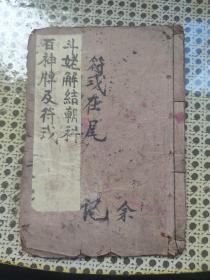 斗姥解結朝科
百神牌及符式
符式在尾
記
余